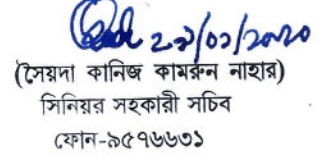 ২৯/০১/২০২০
(সৈয়দা কানিজ কামরুন নাহার)
সিনিয়র সহকারী সচিব
ফোন-৯৫৭৬৬৩১